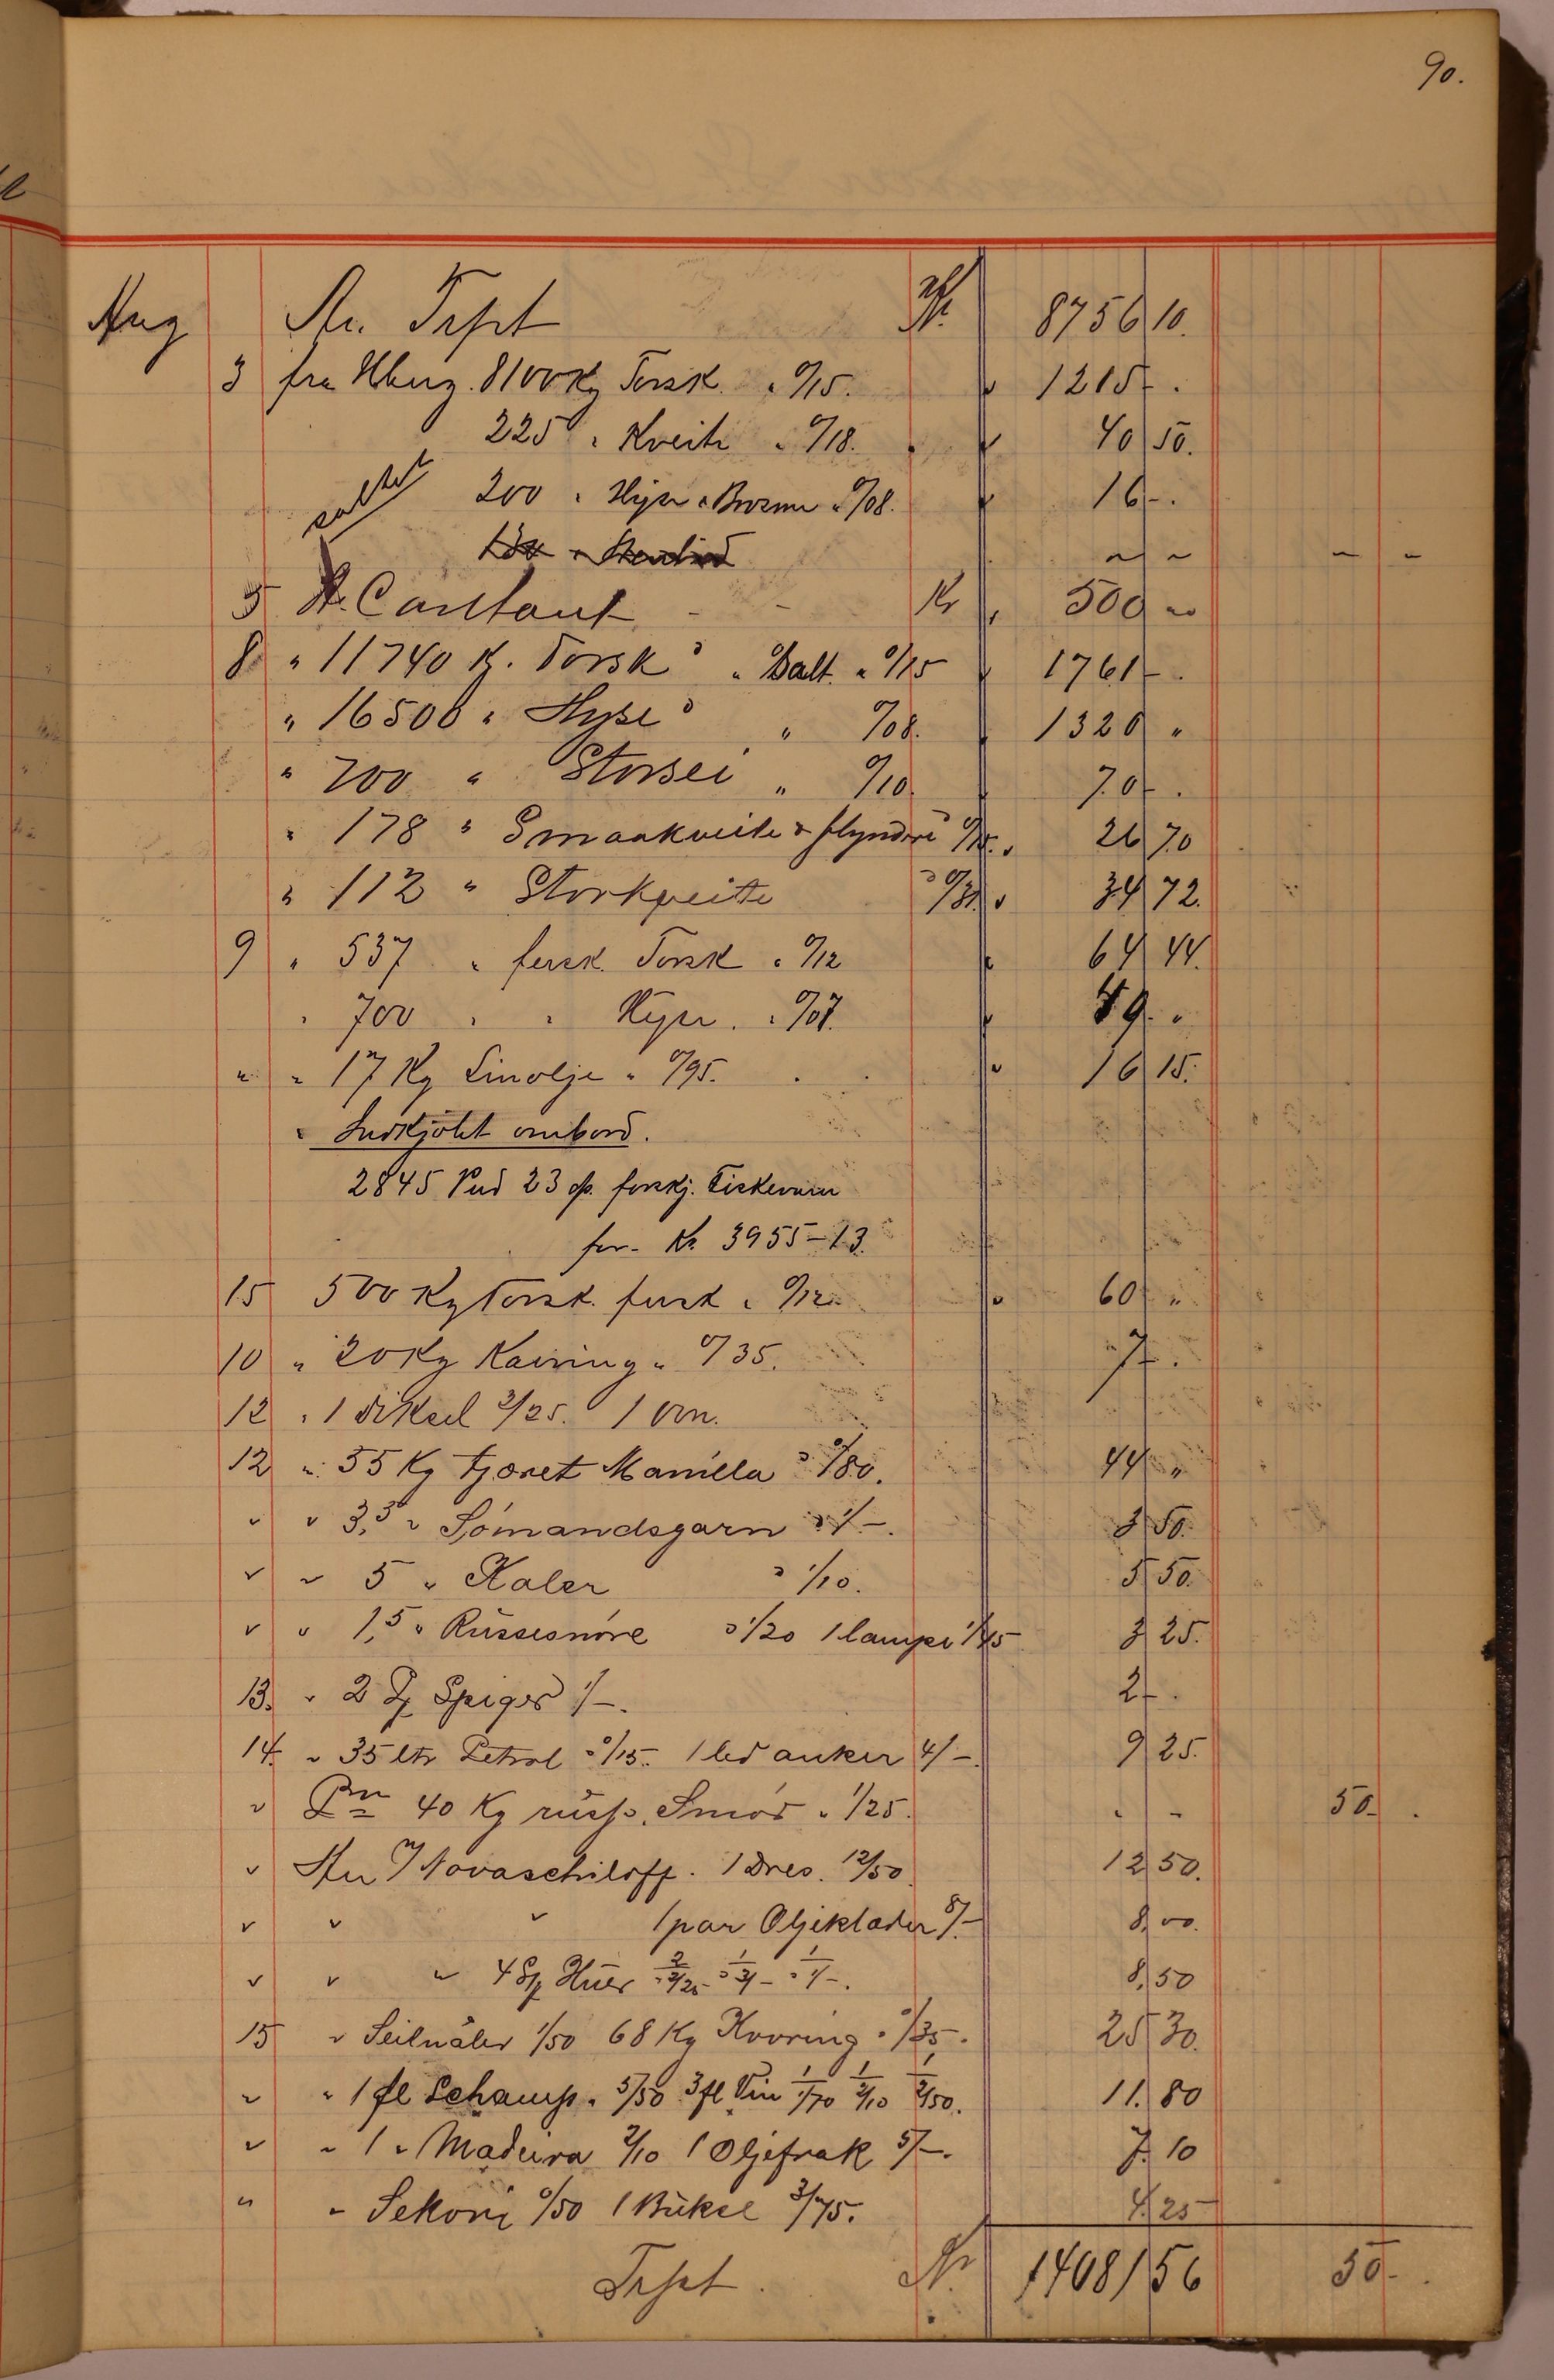 90.
Aug An. Trspt Kr. 8756 10.
3 fra Hberg. 8100 Kg Torsk. " 0/15. " 1215 - .
225 " Kveite " 0/18. " 40 50.
saltet 200 " Hyse & Brosme " 0/08. " 16 - .
" "
5 An. Contant - - Kr " 500 "
8 " 11740 K. Torsk " " Salt. " 0/15 " 1761 - .
" 16500 " Hyse " " 0/08. " 1320 "
" 700 " Storsei " 0/10. " 70 - .
" 178 " Smaakveite & flyndre 0/15. " 26 70
" 112 " Storkveite " 0/31 " 34 72.
9 " 537 " fersk. Torsk " 0/12 " 64 44.
" 700 " " Hyse. " 0/07. " 49. "
" " 17 Kg Linolje " 0/95. " 16 15.
" Indkjöbt ombord.
2845 Pud 23 forskj. Fiskevarer
for. Kr. 3955-13.
15 500 Kg Torsk. fersk " 0/12. " 60 "
10 " 20 Kg Kavring " 0/35. 7 - .
12 " 1 diksel 3/25. 1
12 " 55 Kg tjæret Manilla " 0/80. 44 "
" " 3,5 " Sömandsgarn " 1/-. 3 50.
" " 5 " Kaler " 1/10. 5 50.
" " 1,5 " Russesnöre " 1/20 1 lampe 1/45 3 25.
13. " 2 Spiger 1/-. 2 - .
14. " 35 ltr Petrol " 0/15. 1 led anker 4/-. 9 25.
" 40 Kg russ. Smör " 1/25. " - 50 - .
" An Novaschiloff. 1 Dres. 12/50 12 50.
" " " 1 par Oljeklæder 8/- 8,00.
" " " 4 Huer 2/2/25 " 1/3/- " 1/1/-. 8,50
15 " Seilnåler 1/50 68 Kg Kvoring " 0/35. 25 30.
" " 1 fl Schamp. " 5/50 3 fl Vin 1/1/70 1/2/10 1/2/50. 11. 80
" " 1 " Madeira 2/10 1 Oljefrak 5/-. 7. 10
" " Sekori 0/50 1 Bükse 3/75. 4. 25
Trspt. Kr. 14081 56 50 - .